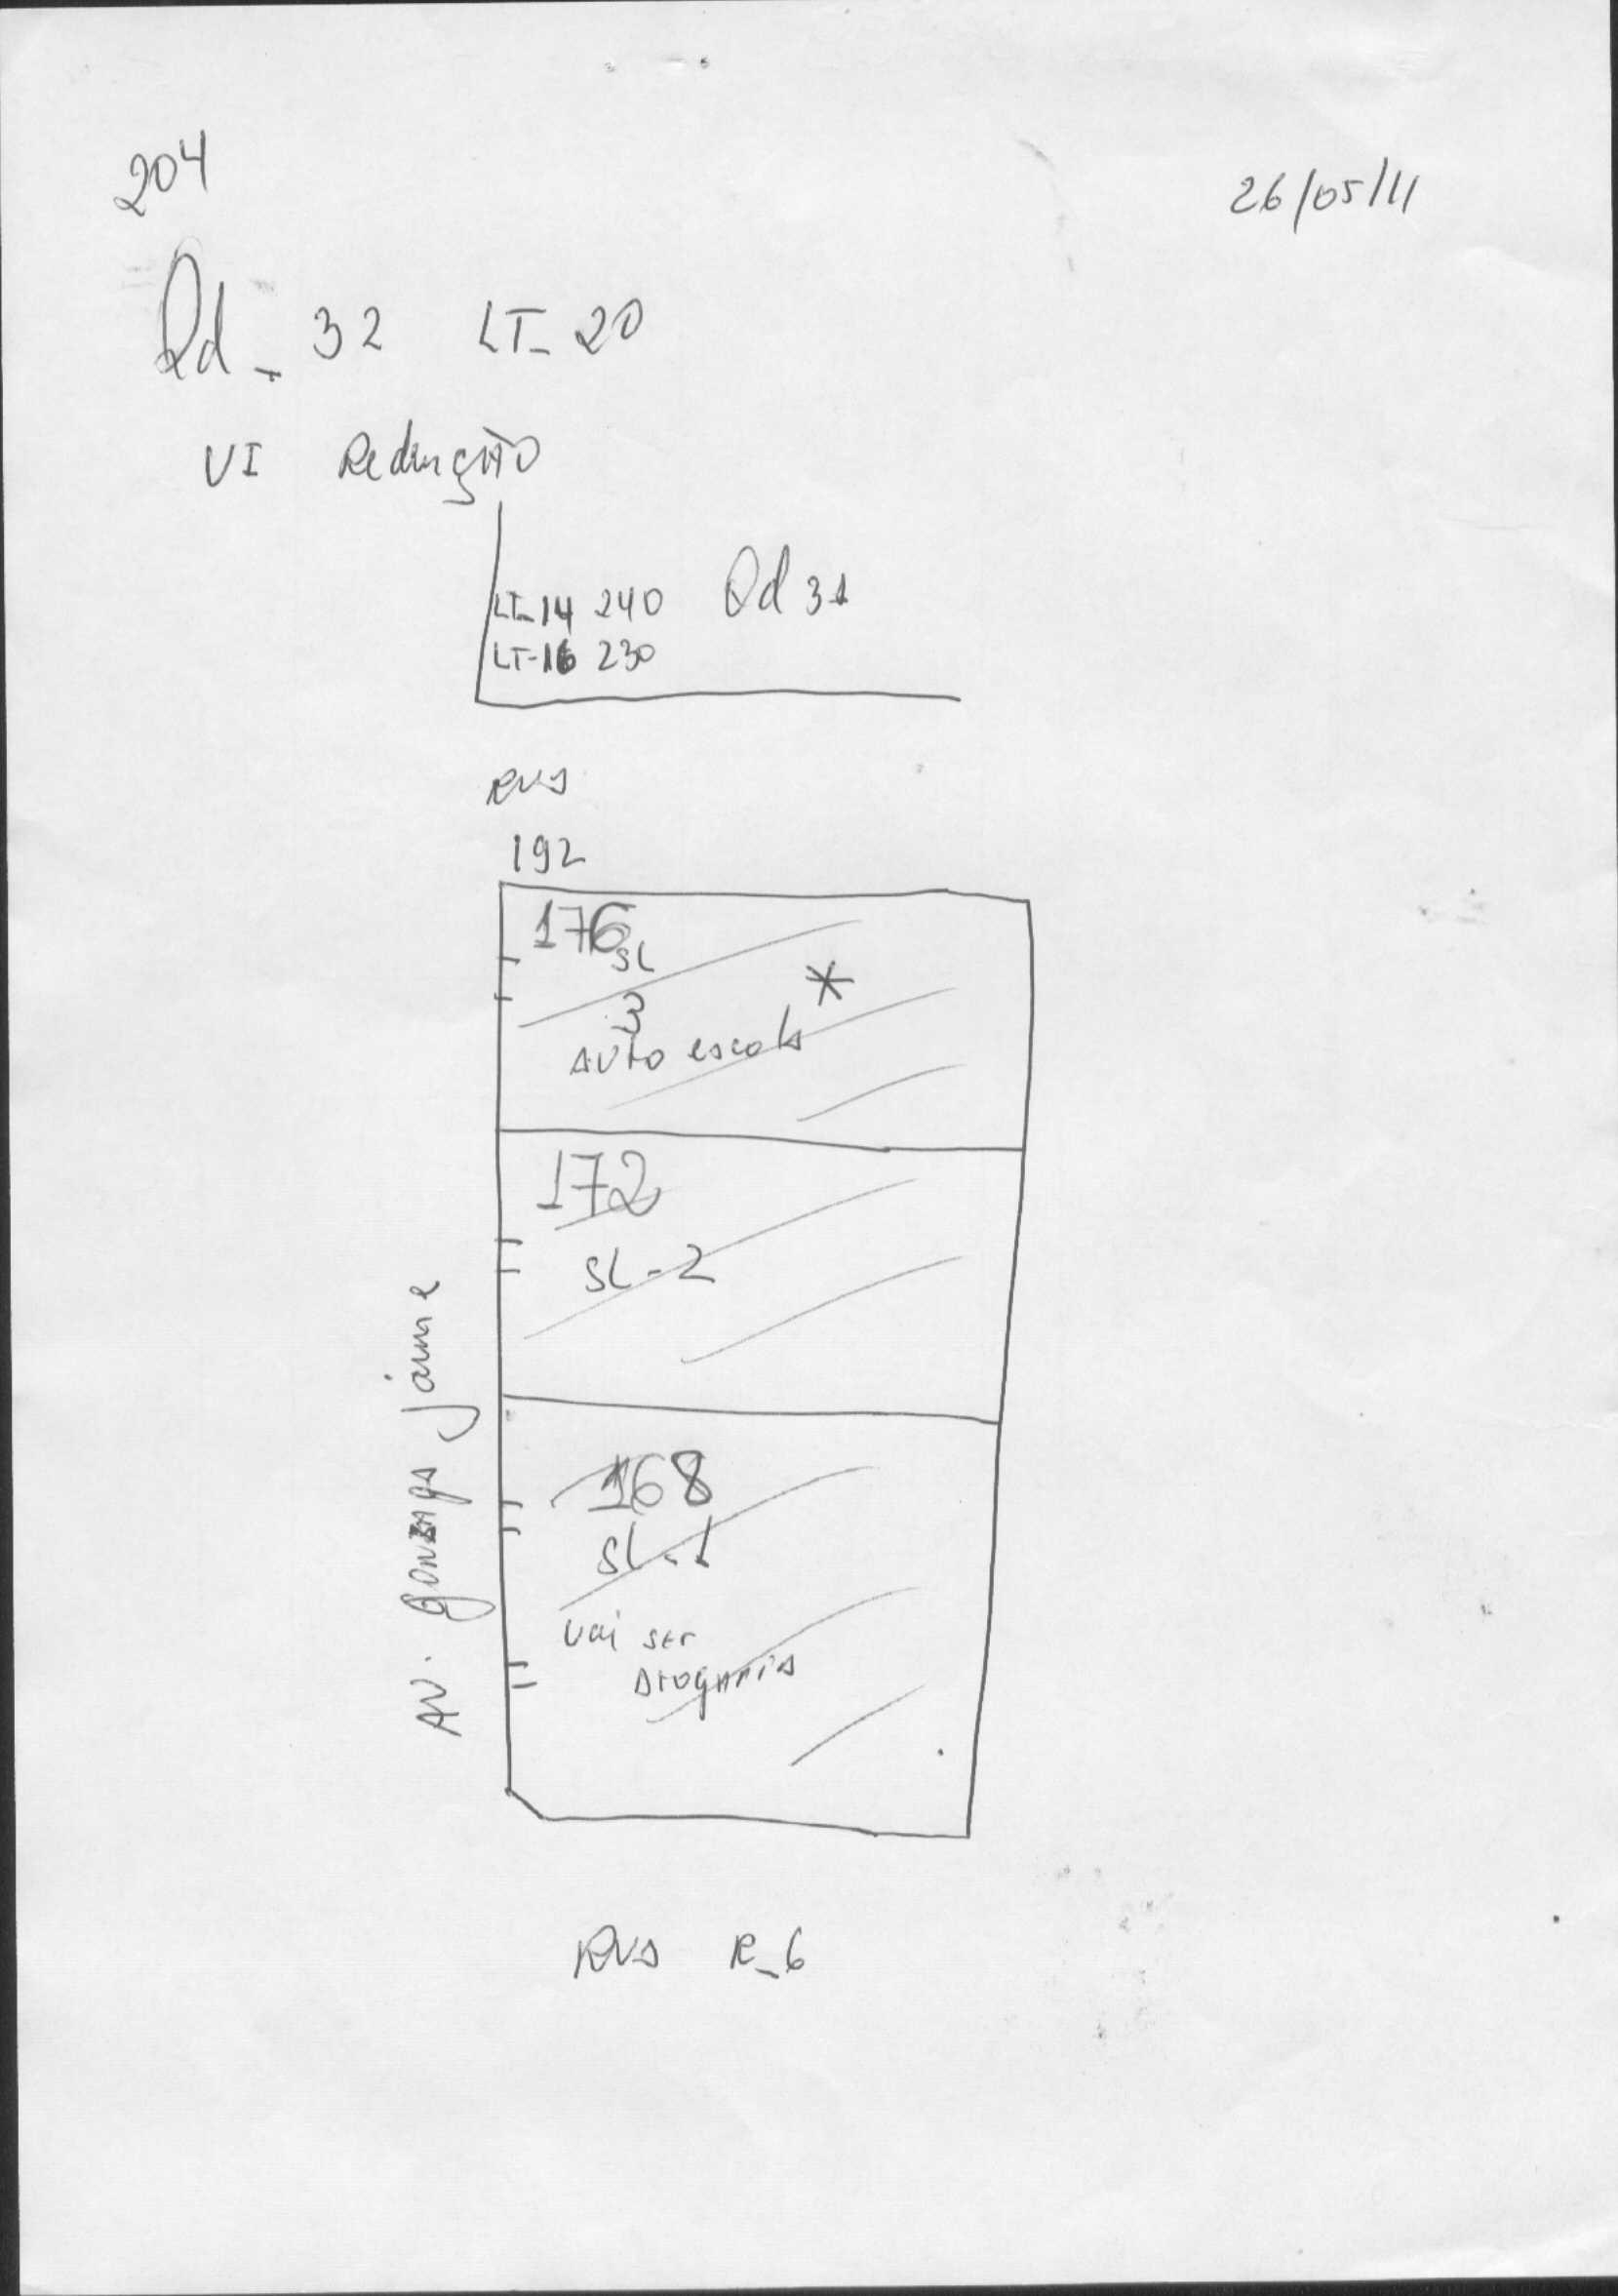 204
26/05/11
Qd - 32 LT - 20
VI Redenção
LT-14 240 Qd 31
LT-16 230
RUA
192
176
SL
3
*
Auto escola
172
SL - 2
168
SL - 1
vai ser
Drogaria
AV. Gonzaga Jayme
RUA R-6